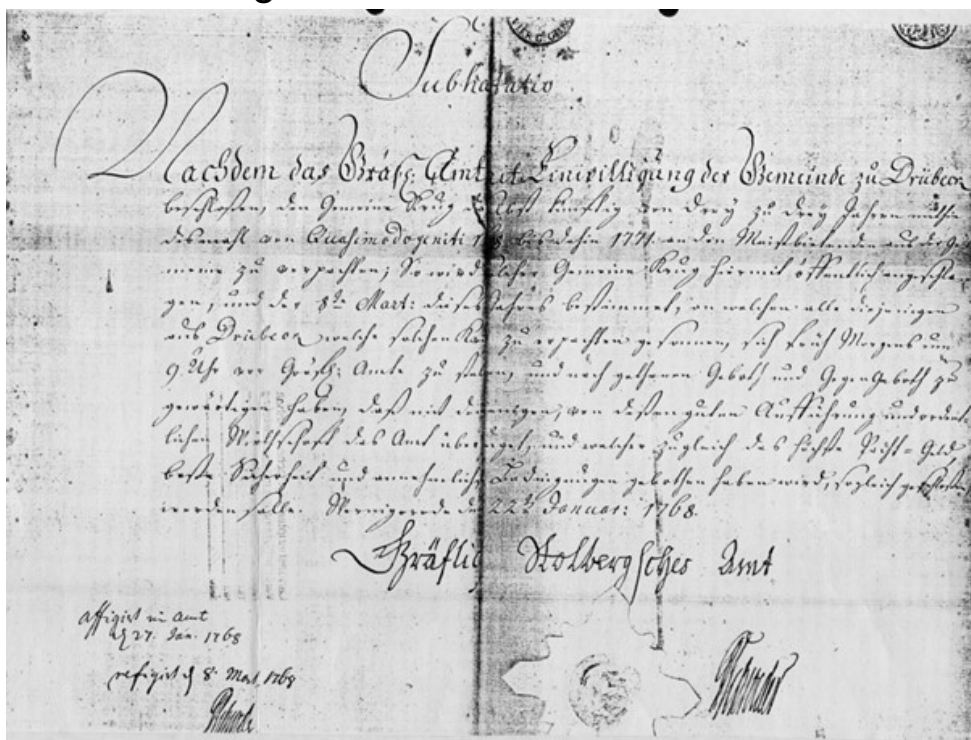 Subhastatio
Nachdem das Gräfl: Amt mit Einwilligung der Gemeinde zu Drübeck
beschloßen, den Gemeine Krug daselbst künfftig von drey zu drey Jahren mithin
dismahl von Quasimodogeniti 1768 bis dahin 1771 an den Meistbietenden aus der Ge-
meine zu verpachten; So wird solcher Gemeine Krug hiermit öffentlich angeschla-
gen, und der 8te Mart: dieses Jahres bestimmet, an welchen alle diejenigen
aus Drübeck welche solchen Krug zu erpachten gesonnen, sich früh Morgens um
9 Uhr vor Gräfl: Amte zu stellen, und nach gethanen Geboth und GegenGeboth zu
gewärtigen haben, daß mit demjenigen, von deßen guten Aufführung und ordent-
lichen Wirthschaft das Amt überzeuget, und welcher zugleich das höchste Pacht-Geld
beste Sicherheit und annehmliche Bedingungen gebothen haben wird, sogleich geschloßen
werden solle. Wernigerode den 22t Januar: 1768.
Gräflich Stolbergsches Amt
affigirt im Amt
d 27. Jan. 1768
refigirt d 8. Mart. 1768